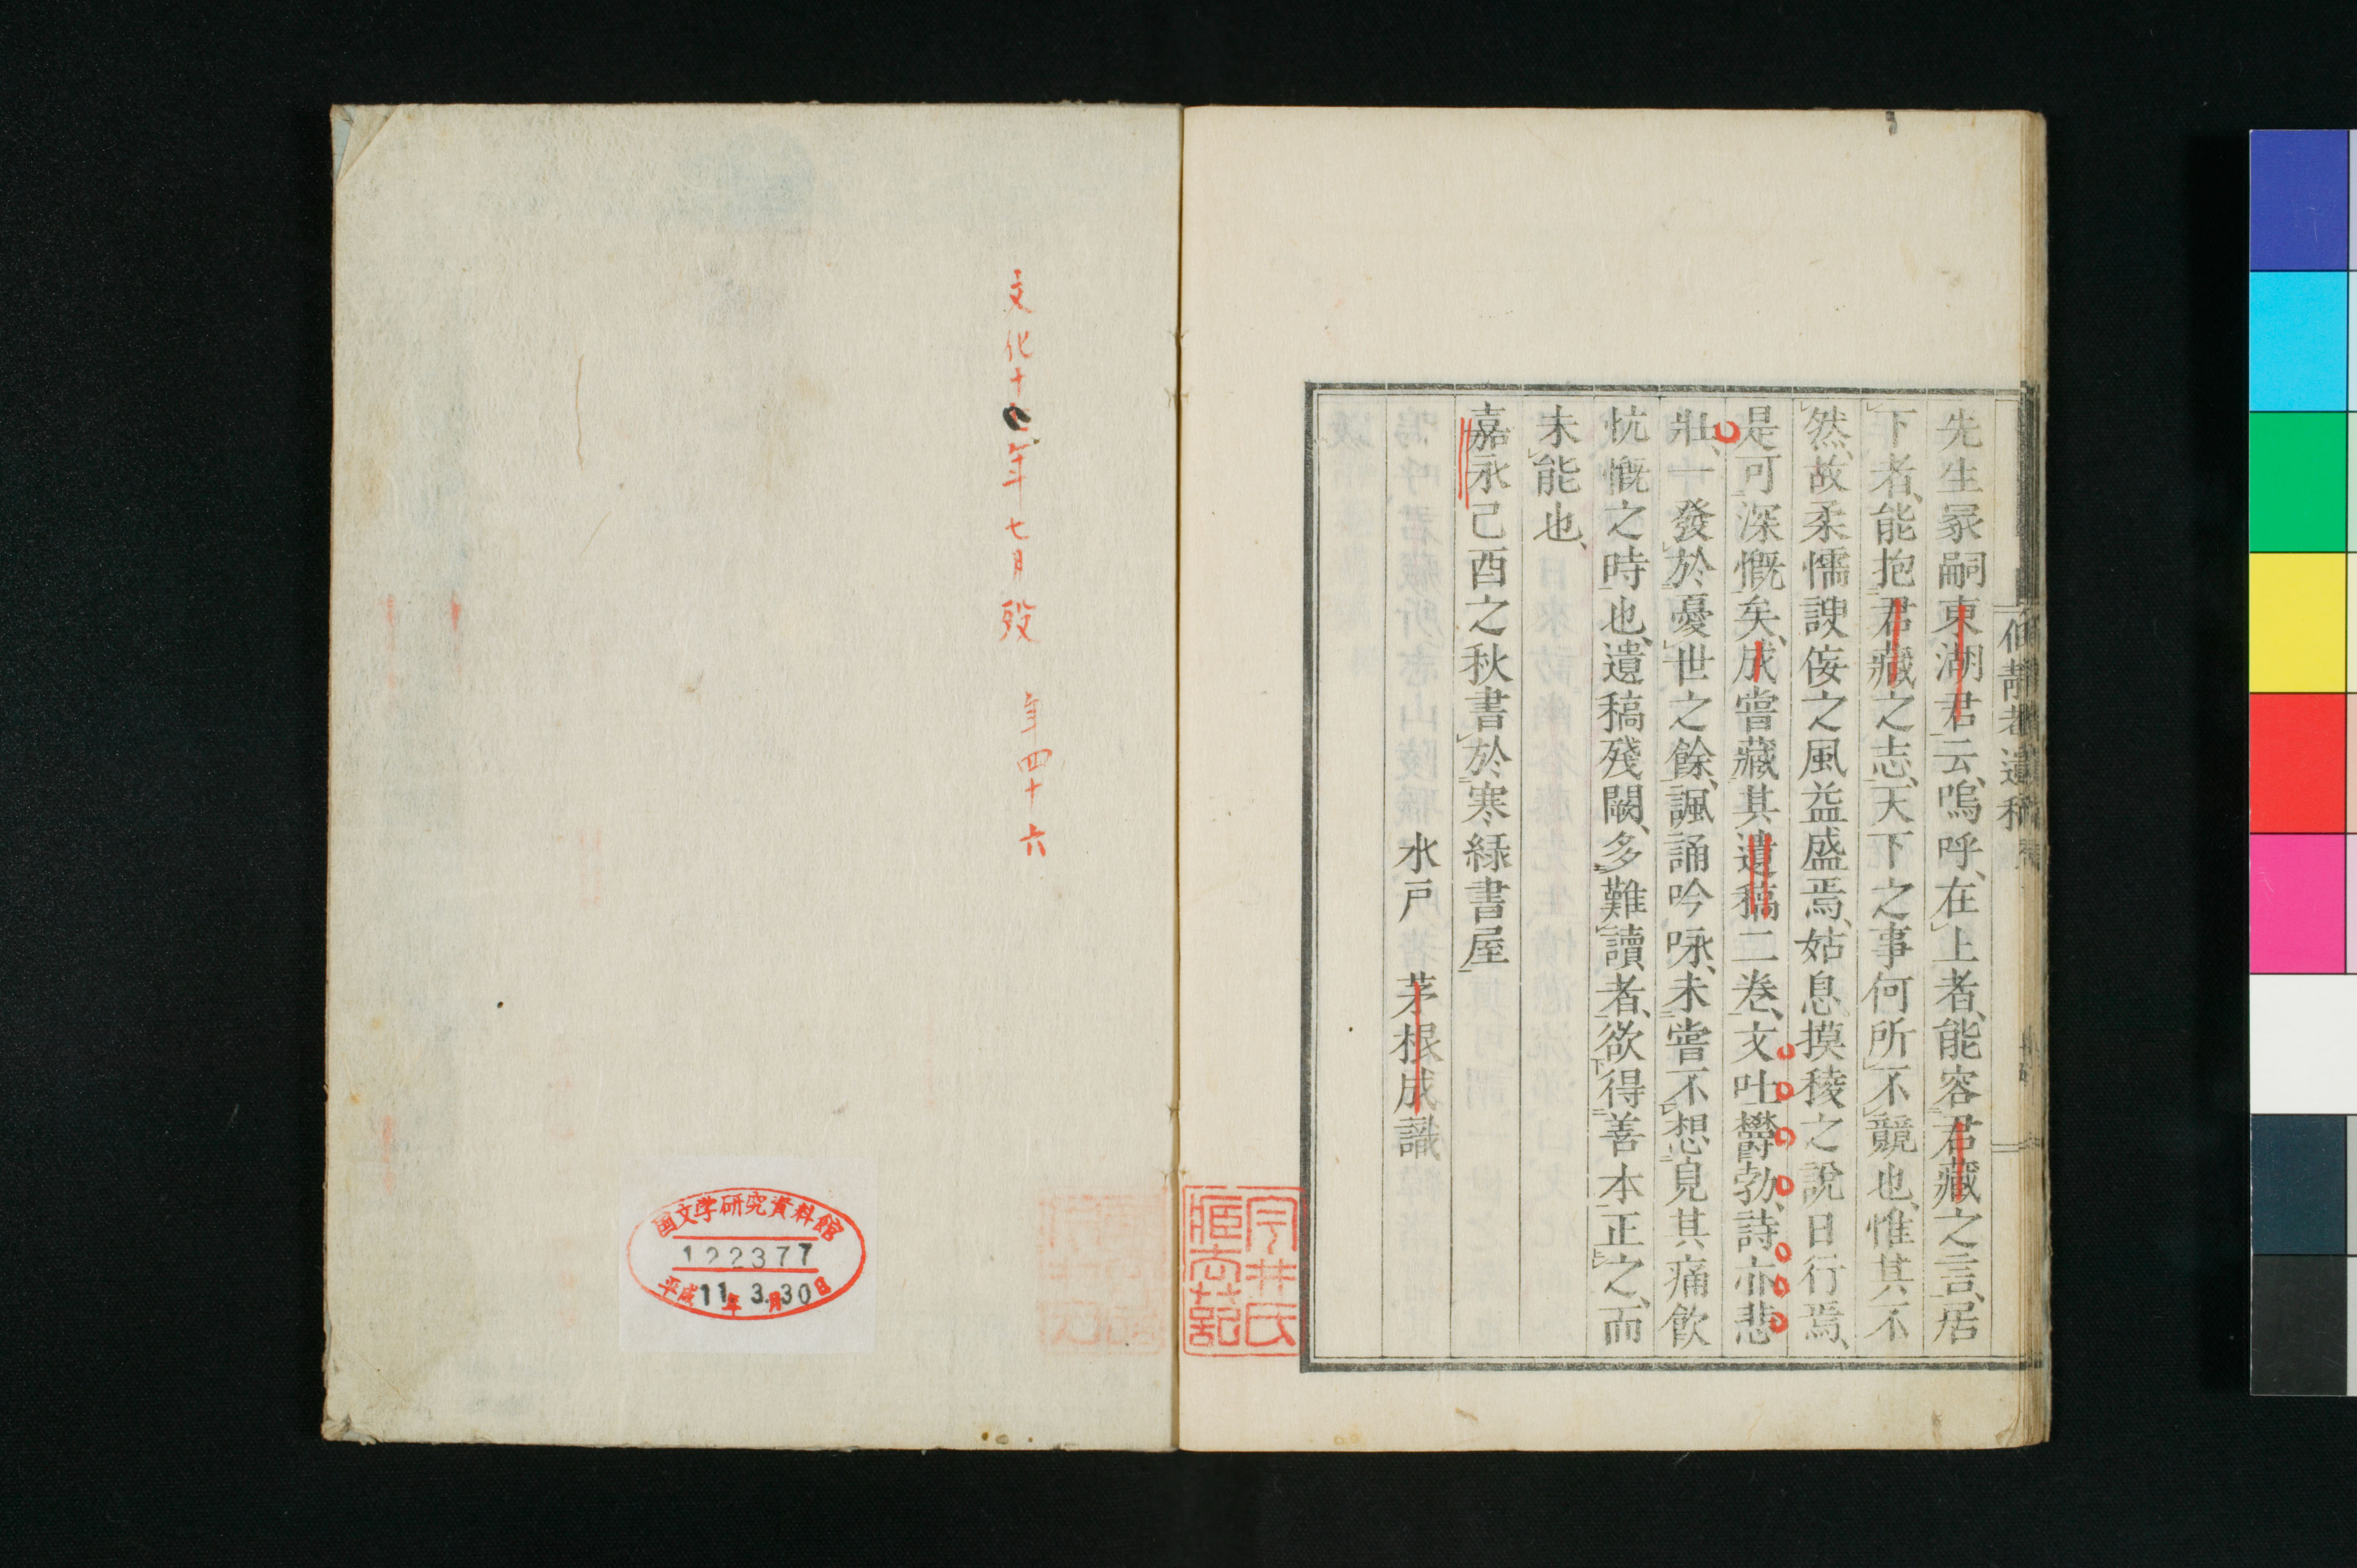 先生冢嗣東湖君云、嗚呼、在上者、能容君藏之言、居
下者、能抱君藏之志、天下之事何所不競也、惟其不
然、故柔懦諛佞之風益盛焉、姑息摸稜之說日行焉、
是可深慨矣、成嘗藏其遺稿二卷、文吐欝勃、詩亦悲
壯、一發於憂世之餘、諷誦吟咏、未嘗不想見其痛飮
忼慨之時也、遺稿殘闕、多難讀者、欲得善本正之、而
未能也、
嘉永己酉之秋書於寒綠書屋
水戶 茅根成識
今井氏
文化十年七月歿 年四十六
国文学研究資料館
122377
平成11年3月30日